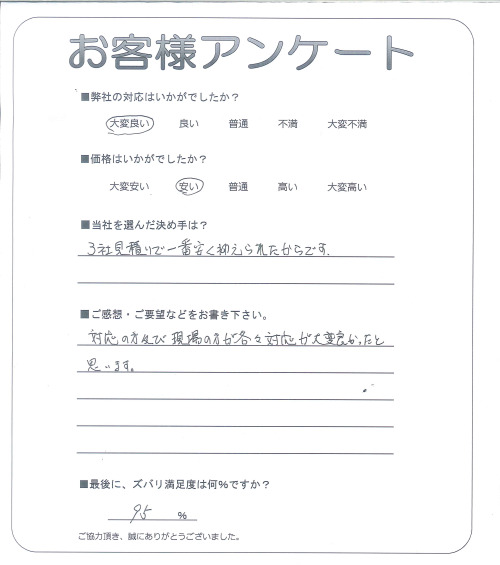 お客様アンケート
■弊社の対応はいかがでしたか？
大変良い 良い 普通 不満 大変不満
■価格はいかがでしたか？
大変安い 安い 普通 高い 大変高い
■当社を選んだ決め手は？
3社見積りで一番安く抑えられたからです.
■ご感想・ご要望などをお書き下さい。
対応の方及び現場の方が各々対応が大変良かったと
思います。
■最後に、ズバリ満足度は何%ですか？
95 %
ご協力頂き、誠にありがとうございました。